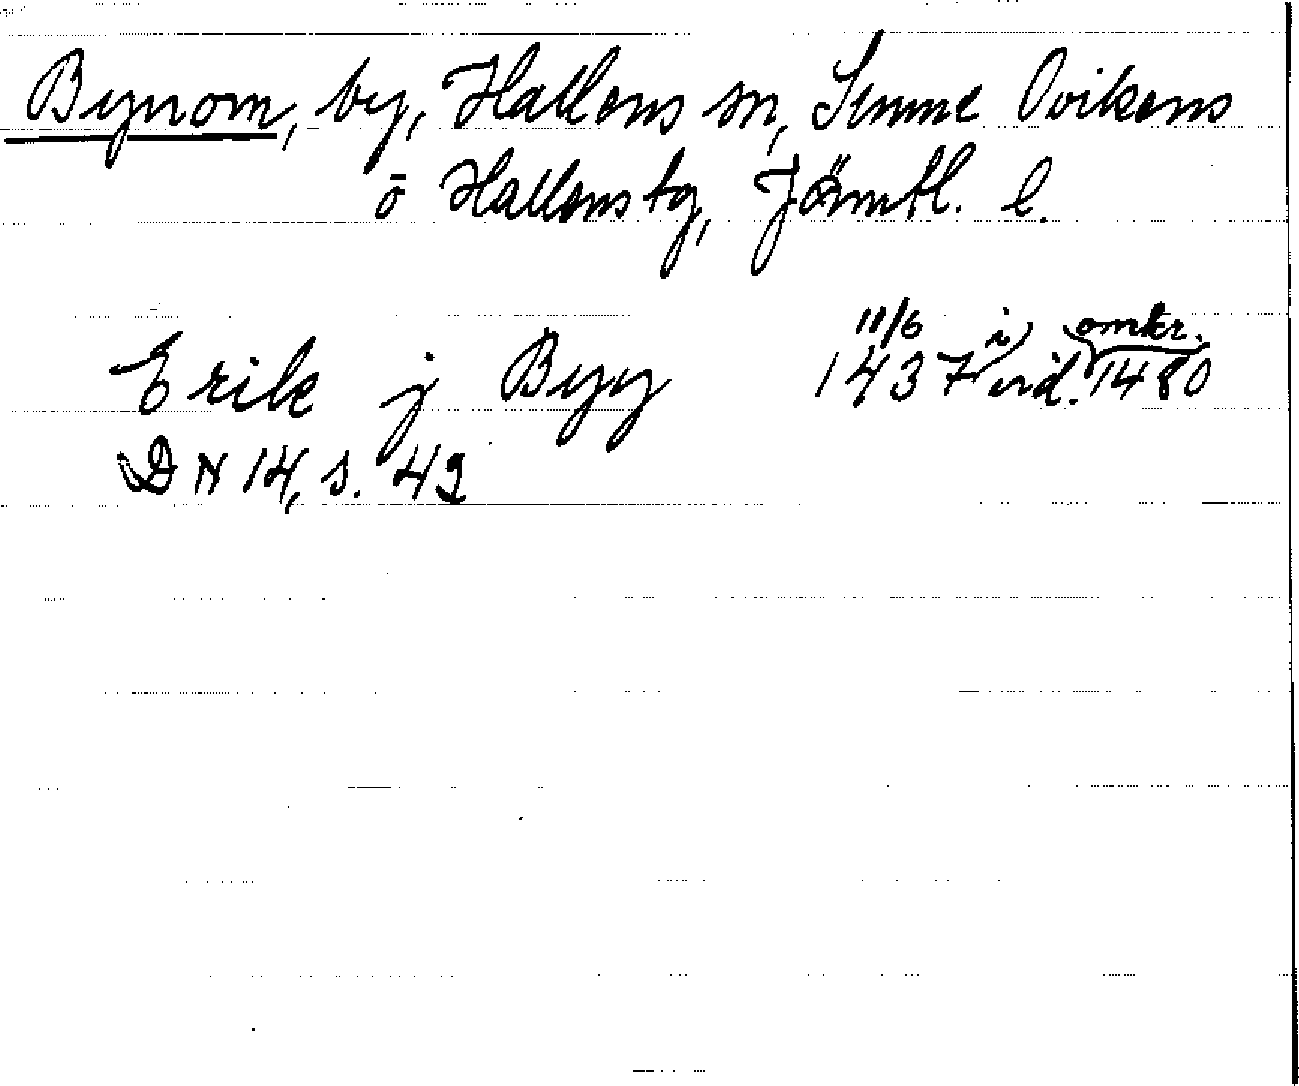 Bynom, by, Hallens sn, Sunne Ovikens
o Hallens tg, Jämtl. l.
Erik j Byy 11/6 1437 i vid. omkr. 1480
DN 14, s. 42